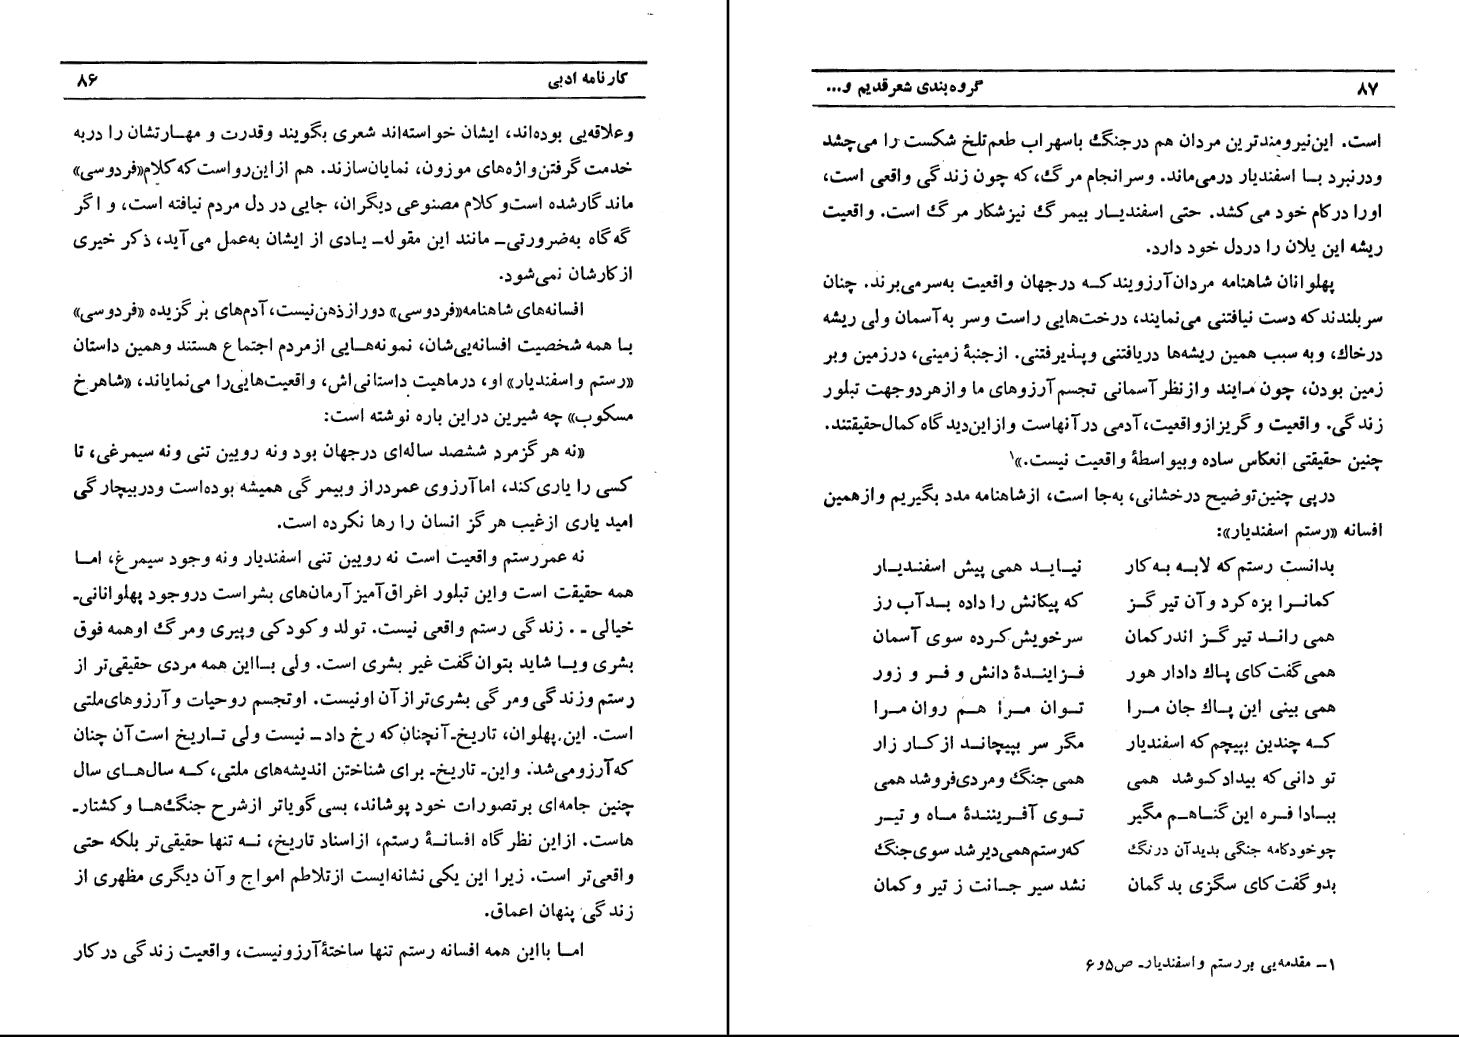 کارنامه ادبی ۸۶
وعلاقه‌یی بوده‌اند، ایشان خواسته‌اند شعری بگویند وقدرت و مهـارتشان را دربه
خدمت گرفتن واژه‌های موزون، نمایان‌سازند. هم ازاین‌رواست‌که‌کلام«فردوسی»
ماندگارشده است‌وکلام مصنوعی دیگران، جایی در دل مردم نیافته است، و اگر
گه‌گاه به‌ضرورتی‌ـ مانند این مقوله‌ـ یـادی از ایشان به‌عمل می‌آید، ذکر خیری
ازکارشان نمی‌شود.
افسانه‌های شاهنامه«فردوسی» دورازذهن‌نیست، آدم‌های برگزیده «فردوسی»
بـا همه شخصیت افسانه‌یی‌شان، نمونه‌هـایی ازمردم اجتماع هستند وهمین داستان
«رستم واسفندیار» او، درماهیت داستانی‌اش، واقعیت‌هایی‌را می‌نمایاند، «شاهرخ
مسکوب» چه شیرین دراین باره نوشته است:
«نه هرگزمرد ششصد ساله‌ای درجهان بود ونه رویین تنی ونه سیمرغی، تا
کسی را یاری‌کند، اماآرزوی عمردراز وبیمرگی همیشه بوده‌است ودربیچارگی
امید یاری ازغیب هرگز انسان را رها نکرده است.
نه عمررستم واقعیت است نه رویین تنی اسفندیار ونه وجود سیمرغ، امـا
همه حقیقت است واین تبلور اغراق‌آمیزآرمان‌های بشراست دروجود پهلوانانی‌ـ
خیالی ـ . . زندگی رستم واقعی نیست. تولد وکودکی وپیری ومرگ اوهمه فوق
بشری ویـا شاید بتوان‌گفت غیر بشری است. ولی بـااین همه مردی حقیقی‌تر از
رستم وزندگی ومرگی بشری‌ترازآن اونیست. اوتجسم روحیات وآرزوهای‌ملتی
است. این‌پهلوان، تاریخ‌ـ‌آنچنان‌که رخ داد‌ـ نیست ولی تـاریخ است‌آن چنان
که‌آرزومی‌شد. واین‌ـ تاریخ‌ـ برای شناختن اندیشه‌های ملتی، کـه سال‌هـای سال
چنین جامه‌ای برتصورات خود پوشاند، بسی‌گویاتر ازشرح جنگ‌هـا وکشتارـ
هاست. ازاین نظرگاه افسانـهٔ رستم، ازاسناد تاریخ، نـه تنها حقیقی‌تر بلکه حتی
واقعی‌تر است. زیرا این یکی نشانه‌ایست ازتلاطم امواج وآن دیگری مظهری از
زندگی پنهان اعماق.
امـا بااین همه افسانه رستم تنها ساختهٔ‌آرزونیست، واقعیت زندگی درکار
گروه‌بندی شعرقدیم و... ۸۷
است. این‌نیرومندترین مردان هم درجنگ باسهراب طعم‌تلخ شکست را می‌چشد
ودرنبرد بـا اسفندیار درمی‌ماند. وسرانجام مرگ،که چون زندگی واقعی است،
اورا درکام خود می‌کشد. حتی اسفندیـار بیمرگ نیزشکار مرگ است. واقعیت
ریشه این یلان را دردل خود دارد.
پهلوانان شاهنامه مردان‌آرزویندکـه درجهان واقعیت به‌سرمی‌برند. چنان
سربلندندکه دست نیافتنی می‌نمایند، درخت‌هایی راست وسر به‌آسمان ولی ریشه
درخاك، وبه سبب همین ریشه‌ها دریافتنی وپذیرفتنی. ازجنبهٔ زمینی، درزمین وبر
زمین بودن، چون مـایند وازنظرآسمانی تجسم‌آرزوهای ما وازهردوجهت تبلور
زندگی. واقعیت وگریزازواقعیت، آدمی درآنهاست وازاین‌دیدگاه کمال‌حقیقتند.
چنین حقیقتی انعکاس ساده وبیواسطهٔ واقعیت نیست.»۱
درپی چنین‌توضیح درخشانی، به‌جا است، ازشاهنامه مدد بگیریم وازهمین
افسانه «رستم اسفندیار»:
بدانست رستم‌که لابـه بـه‌کار نیـایـد همی پیش اسفنـدیـار
کمانـرا بزه‌کرد وآن تیرگـز که پیکانش را داده بـدآب رز
همی رانـد تیرگـز اندرکمان سرخویش‌کـرده سوی آسمان
همی‌گفت‌کای پـاك دادار هور فـزاینـدهٔ دانش و فـر و زور
همی بینی این پـاك جان مـرا تـوان مـرا هـم روان مـرا
کـه چندین بپیچم که اسفندیار مگر سر بپیچانـد ازکـار زار
تو دانی‌که بیدادکـوشد همی همی جنگ ومردی‌فروشد همی
ببادا فـره این‌گنـاهـم مگیر تـوی آفـریننـدهٔ مـاه و تیـر
چوخودکامه جنگی بدیدآن درنگ که‌رستم‌همی‌دیرشد سوی‌جنگ
بدوگفت‌کای سگزی بدگمان نشد سیر جـانت ز تیر وکمان
۱ــ مقدمه‌یی بررستم واسفندیارـ ص۵و۶